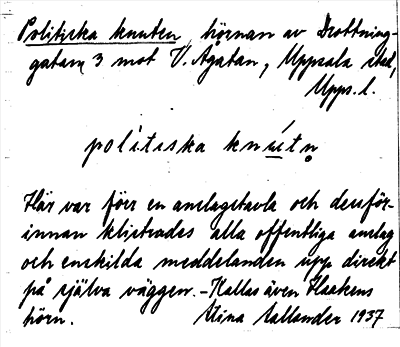 Politiska knuten, hörnan av Drottning-
gatan 3 mot V. Ågatan, Uppsala stad,
Upps. l.
polítiska knútn̥
Här var förr en anslagstavla och dessför-
innan klistrades alla offentliga anslag
och enskilda meddelanden upp direkt
på själva väggen. - Kallas även Haakens
hörn. Stina Vallander 1937